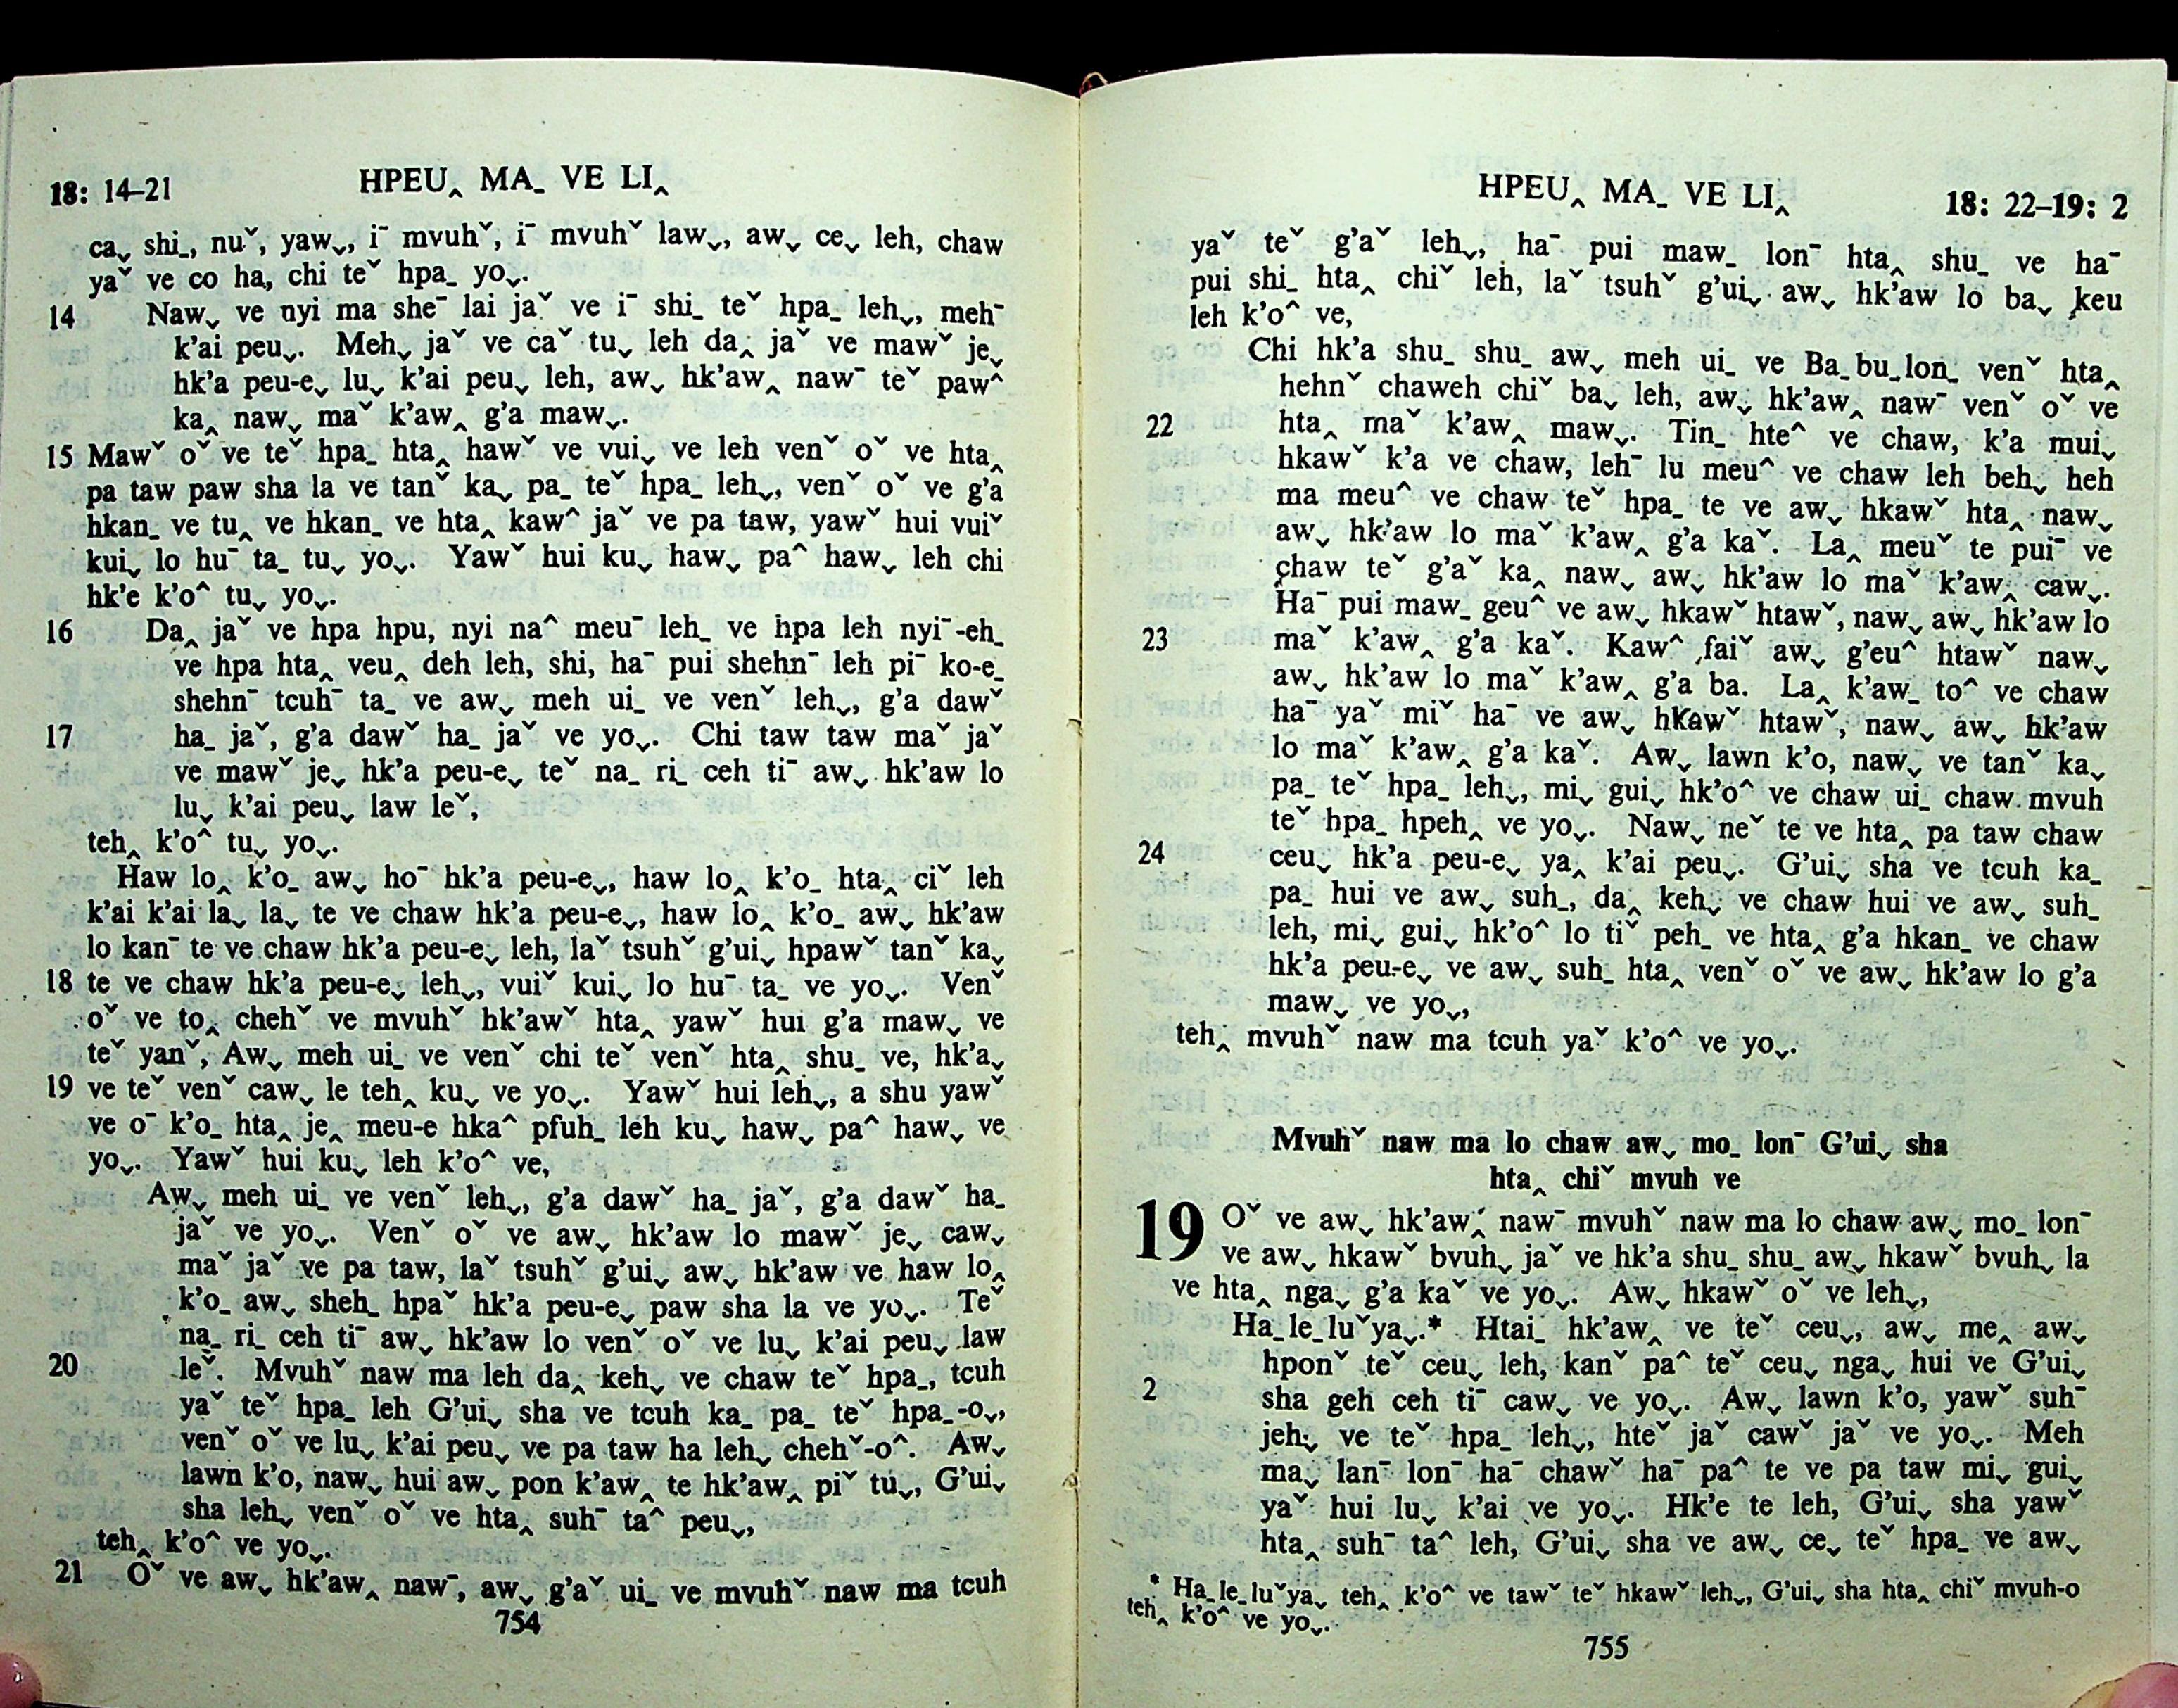 18: 14–21
HPEU‸ MA_ VE LI‸
ca⌄ shi_, nuˇ, yaw⌄, i¯ mvuhˇ, i¯ mvuhˇ law⌄, aw⌄ ce⌄ leh, chaw
yaˇ ve co ha, chi teˇ hpa_ yo⌄.
14 Naw⌄ ve nyi ma she¯ lai jaˇ ve i¯ shi_ teˇ hpa_ leh⌄, meh¯
k’ai peu⌄. Meh⌄ jaˇ ve caˇ tu⌄ leh da‸ jaˇ ve mawˇ je⌄
hk’a peu-e⌄ lu⌄ k’ai peu⌄ leh, aw⌄ hk’aw‸ naw¯ teˇ paw^
ka‸ naw⌄ maˇ k’aw‸ g’a maw⌄.
15 Mawˇ oˇ ve teˇ hpa_ hta‸ hawˇ ve vui⌄ ve leh venˇ oˇ ve hta‸
pa taw paw sha la ve tanˇ ka⌄ pa_ teˇ hpa_ leh⌄, venˇ oˇ ve g’a
hkan_ ve tu‸ ve hkan_ ve hta‸ kaw^ jaˇ ve pa taw, yawˇ hui vuiˇ
kui⌄ lo hu¯ ta_ tu⌄ yo⌄. Yawˇ hui ku⌄ haw⌄ pa^ haw⌄ leh chi
hk’e k’o^ tu⌄ yo⌄.
16 Da‸ jaˇ ve hpa hpu, nyi na^ meu¯ leh_ ve hpa leh nyi¯-eh_
ve hpa hta‸ veu‸ deh leh, shi, ha¯ pui shehn¯ leh pi¯ ko-e_
shehn¯ tcuh¯ ta_ ve aw⌄ meh ui_ ve venˇ leh⌄, g’a dawˇ
17 ha_ jaˇ, g’a dawˇ ha_ jaˇ ve yo⌄. Chi taw taw maˇ jaˇ
ve mawˇ je⌄ hk’a peu-e⌄ teˇ na_ ri_ ceh ti¯ aw⌄ hk’aw lo
lu⌄ k’ai peu⌄ law leˇ,
teh‸ k’o^ tu⌄ yo⌄.
Haw lo‸ k’o_ aw⌄ ho¯ hk’a peu-e⌄, haw lo‸ k’o_ hta‸ ciˇ leh
k’ai k’ai la⌄ la⌄ te ve chaw hk’a peu-e⌄, haw lo‸ k’o_ aw⌄ hk’aw
lo kan¯ te ve chaw hk’a peu-e⌄ leh, laˇ tsuhˇ g’ui⌄ hpawˇ tanˇ ka⌄
18 te ve chaw hk’a peu-e⌄ leh⌄, vuiˇ kui⌄ lo hu¯ ta_ ve yo⌄. Venˇ
oˇ ve to‸ chehˇ ve mvuhˇ hk’awˇ hta‸ yawˇ hui g’a maw⌄ ve
teˇ yanˇ, Aw⌄ meh ui_ ve venˇ chi teˇ venˇ hta‸ shu_ ve, hk’a⌄
19 ve teˇ venˇ caw⌄ le teh‸ ku⌄ ve yo⌄. Yawˇ hui leh⌄, a shu yawˇ
ve o¯ k’o_ hta‸ je‸ meu-e hka^ pfuh_ leh ku⌄ haw⌄ pa^ haw⌄ ve
yo⌄. Yawˇ hui ku⌄ leh k’o^ ve,
Aw⌄ meh ui_ ve venˇ leh⌄, g’a dawˇ ha_ jaˇ, g’a dawˇ ha_
jaˇ ve yo⌄. Venˇ oˇ ve aw⌄ hk’aw lo mawˇ je⌄ caw⌄
maˇ jaˇ ve pa taw, laˇ tsuhˇ g’ui⌄ aw⌄ hk’aw ve haw lo‸
k’o_ aw⌄ sheh_ hpaˇ hk’a peu-e⌄ paw sha la ve yo⌄. Teˇ
na_ ri_ ceh ti¯ aw⌄ hk’aw lo venˇ oˇ ve lu⌄ k’ai peu⌄ law
20 leˇ. Mvuhˇ naw ma leh da‸ keh⌄ ve chaw teˇ hpa_, tcuh
yaˇ teˇ hpa_ leh G’ui⌄ sha ve tcuh ka_ pa_ teˇ hpa_-o⌄,
venˇ oˇ ve lu⌄ k’ai peu⌄ ve pa taw ha leh⌄ chehˇ-o^. Aw⌄
lawn k’o, naw⌄ hui aw⌄ pon k’aw‸ te hk’aw‸ piˇ tu⌄, G’ui⌄
sha leh⌄ venˇ oˇ ve hta‸ suh¯ ta^ peu⌄,
teh‸ k’o^ ve yo⌄.
21 Oˇ ve aw⌄ hk’aw‸ naw¯, aw⌄ g’aˇ ui_ ve mvuhˇ naw ma tcuh
754
HPEU‸ MA_ VE LI‸
18: 22–19: 2
yaˇ teˇ g’aˇ leh⌄, ha¯ pui maw_ lon¯ hta‸ shu_ ve ha¯
pui shi_ hta‸ chiˇ leh, laˇ tsuhˇ g’ui⌄ aw⌄ hk’aw lo ba⌄ keu
leh k’o^ ve,
Chi hk’a shu_ shu_ aw⌄ meh ui_ ve Ba_bu_lon_ venˇ hta‸
hehnˇ chaweh chiˇ ba⌄ leh, aw⌄ hk’aw‸ naw¯ venˇ oˇ ve
22 hta‸ maˇ k’aw‸ maw⌄. Tin_ hte^ ve chaw, k’a mui⌄
hkawˇ k’a ve chaw, leh¯ lu meu^ ve chaw leh beh⌄ heh
ma meu^ ve chaw teˇ hpa_ te ve aw⌄ hkawˇ hta‸ naw⌄
aw⌄ hk’aw lo maˇ k’aw‸ g’a kaˇ. La‸ meuˇ te pui¯ ve
chaw teˇ g’aˇ ka‸ naw⌄ aw⌄ hk’aw lo maˇ k’aw‸ caw⌄.
Ha¯ pui maw_ geu^ ve aw⌄ hkawˇ htawˇ, naw⌄ aw⌄ hk’aw lo
23 maˇ k’aw‸ g’a kaˇ. Kaw^ faiˇ aw⌄ g’eu^ htawˇ naw⌄
aw⌄ hk’aw lo maˇ k’aw‸ g’a ba. La‸ k’aw_ to^ ve chaw
ha¯ yaˇ miˇ ha¯ ve aw⌄ hkawˇ htawˇ, naw⌄ aw⌄ hk’aw
lo maˇ k’aw‸ g’a kaˇ. Aw⌄ lawn k’o, naw⌄ ve tanˇ ka⌄
pa_ teˇ hpa_ leh⌄, mi⌄ gui⌄ hk’o^ ve chaw ui_ chaw mvuh
teˇ hpa_ hpeh‸ ve yo⌄. Naw⌄ neˇ te ve hta‸ pa taw chaw
24 ceu⌄ hk’a peu-e⌄ ya‸ k’ai peu⌄. G’ui⌄ sha ve tcuh ka_
pa_ hui ve aw⌄ suh_, da‸ keh⌄ ve chaw hui ve aw⌄ suh_
leh, mi⌄ gui⌄ hk’o^ lo tiˇ peh_ ve hta‸ g’a hkan_ ve chaw
hk’a peu-e⌄ ve aw⌄ suh_ hta‸ venˇ oˇ ve aw⌄ hk’aw lo g’a
maw⌄ ve yo⌄,
teh‸ mvuhˇ naw ma tcuh yaˇ k’o^ ve yo⌄.
Mvuhˇ naw ma lo chaw aw⌄ mo_ lon¯ G’ui⌄ sha
hta‸ chiˇ mvuh ve
19 Oˇ ve aw⌄ hk’aw‸ naw¯ mvuhˇ naw ma lo chaw aw⌄ mo_ lon¯
ve aw⌄ hkawˇ bvuh⌄ jaˇ ve hk’a shu_ shu_ aw⌄ hkawˇ bvuh⌄ la
ve hta‸ nga⌄ g’a kaˇ ve yo⌄. Aw⌄ hkawˇ oˇ ve leh⌄,
Ha_le_luˇya⌄.* Htai_ hk’aw‸ ve teˇ ceu⌄, aw⌄ me‸ aw⌄
hponˇ teˇ ceu⌄ leh, kanˇ pa^ teˇ ceu⌄ nga⌄ hui ve G’ui⌄
2 sha geh ceh ti¯ caw⌄ ve yo⌄. Aw⌄ lawn k’o, yawˇ suh¯
jeh⌄ ve teˇ hpa_ leh⌄, hteˇ jaˇ cawˇ jaˇ ve yo⌄. Meh
ma⌄ lan¯ lon¯ ha¯ chawˇ ha¯ pa^ te ve pa taw mi⌄ gui⌄
yaˇ hui lu⌄ k’ai ve yo⌄. Hk’e te leh, G’ui⌄ sha yawˇ
hta‸ suh¯ ta^ leh, G’ui⌄ sha ve aw⌄ ce⌄ teˇ hpa_ ve aw⌄
* Ha_le_luˇya⌄ teh‸ k’o^ ve tawˇ teˇ hkawˇ leh⌄, G’ui⌄ sha hta‸ chiˇ mvuh-o
teh‸ k’o^ ve yo⌄.
755